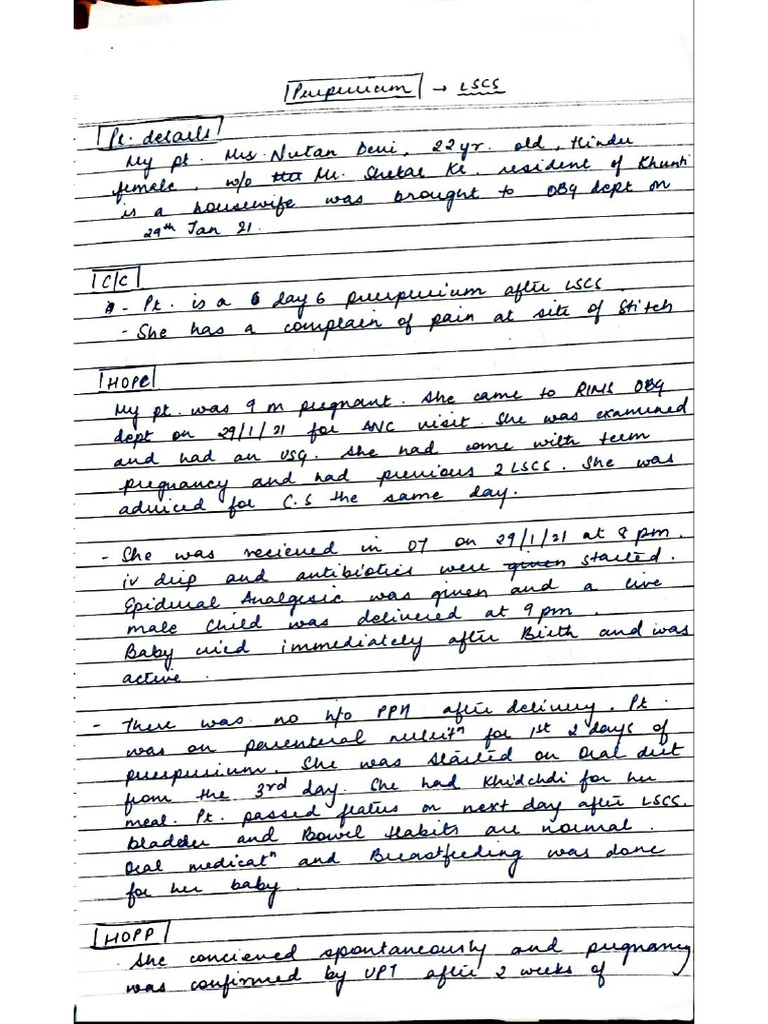 Puerperium → LSCS
Pt. details
My pt. Mrs. Nutan Devi, 22 yr. old, Hindu
female, w/o Mr. Shekar Kr. resident of Khunti
is a housewife was brought to OBG dept on
29th Jan 21.
C/C
- Pt. is a day 6 puerperium after LSCS.
- She has a complain of pain at site of stitch
HOPC
My pt. was 9 m pregnant. She came to RIMS OBG
dept on 29/1/21 for ANC visit. She was examined
and had an USG. She had come with term
pregnancy and had previous 2 LSCS. She was
adviced for C.S the same day.
- She was recieved in OT on 29/1/21 at 8 pm.
iv drip and antibiotics were given started.
Epidural Analgesic was given and a live
male child was delivered at 9 pm.
Baby cried immediately after Birth and was
active.
- There was no h/o PPH after delivery. Pt.
was on parenteral nutritⁿ for 1st 2 days of
puerperium. She was started on Oral diet
from the 3rd day. She had Khidchdi for her
meal. Pt. passed flatus on next day after LSCS.
Bladder and Bowel Habits are normal.
Oral medicatⁿ and Breastfeeding was done
for her baby.
HOPP
She concieved spontaneously and pregnancy
was confirmed by UPT after 2 weeks of